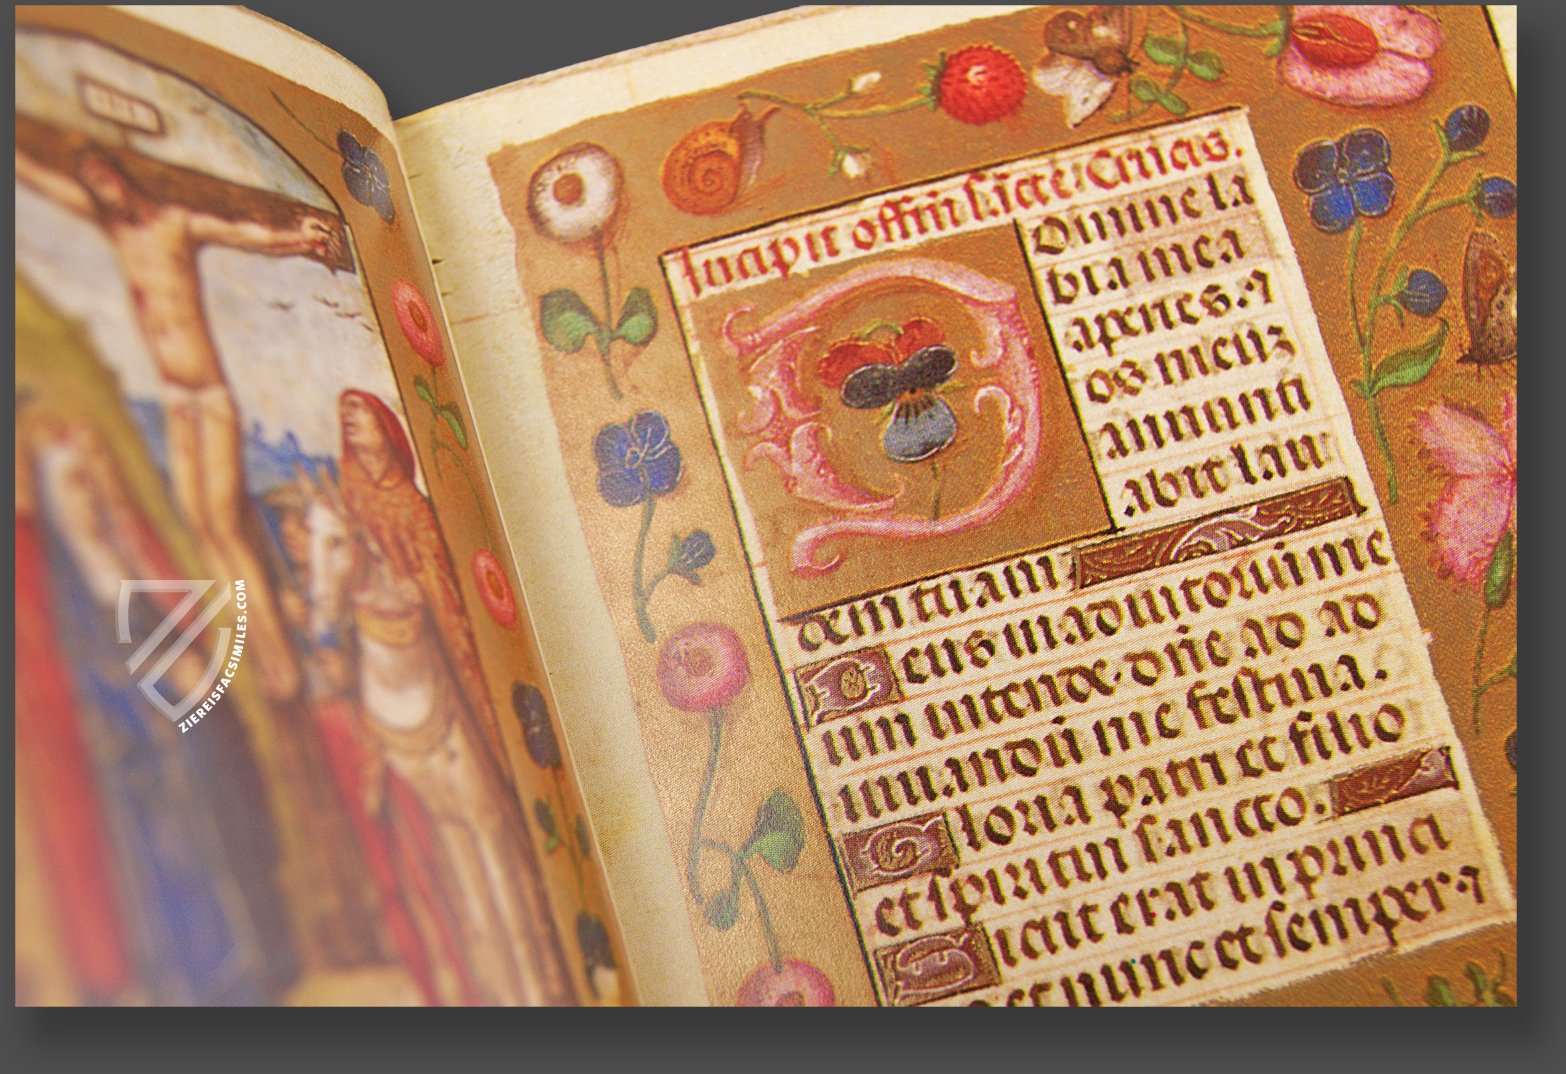 Incipit offiti s. scte Crucis.
Domine la
bia mea
aperies. ⁊
os meuz
annunti
abit lau
dem tuam.
Deus in adiutoriu me
um intende. dñe ad ad
iuuandũ me festina.
Gloria patri et filio
et spiritui sancto.
Sicut erat in princi
et nunc et semper. ⁊
ZIEREISFACSIMILES.COM